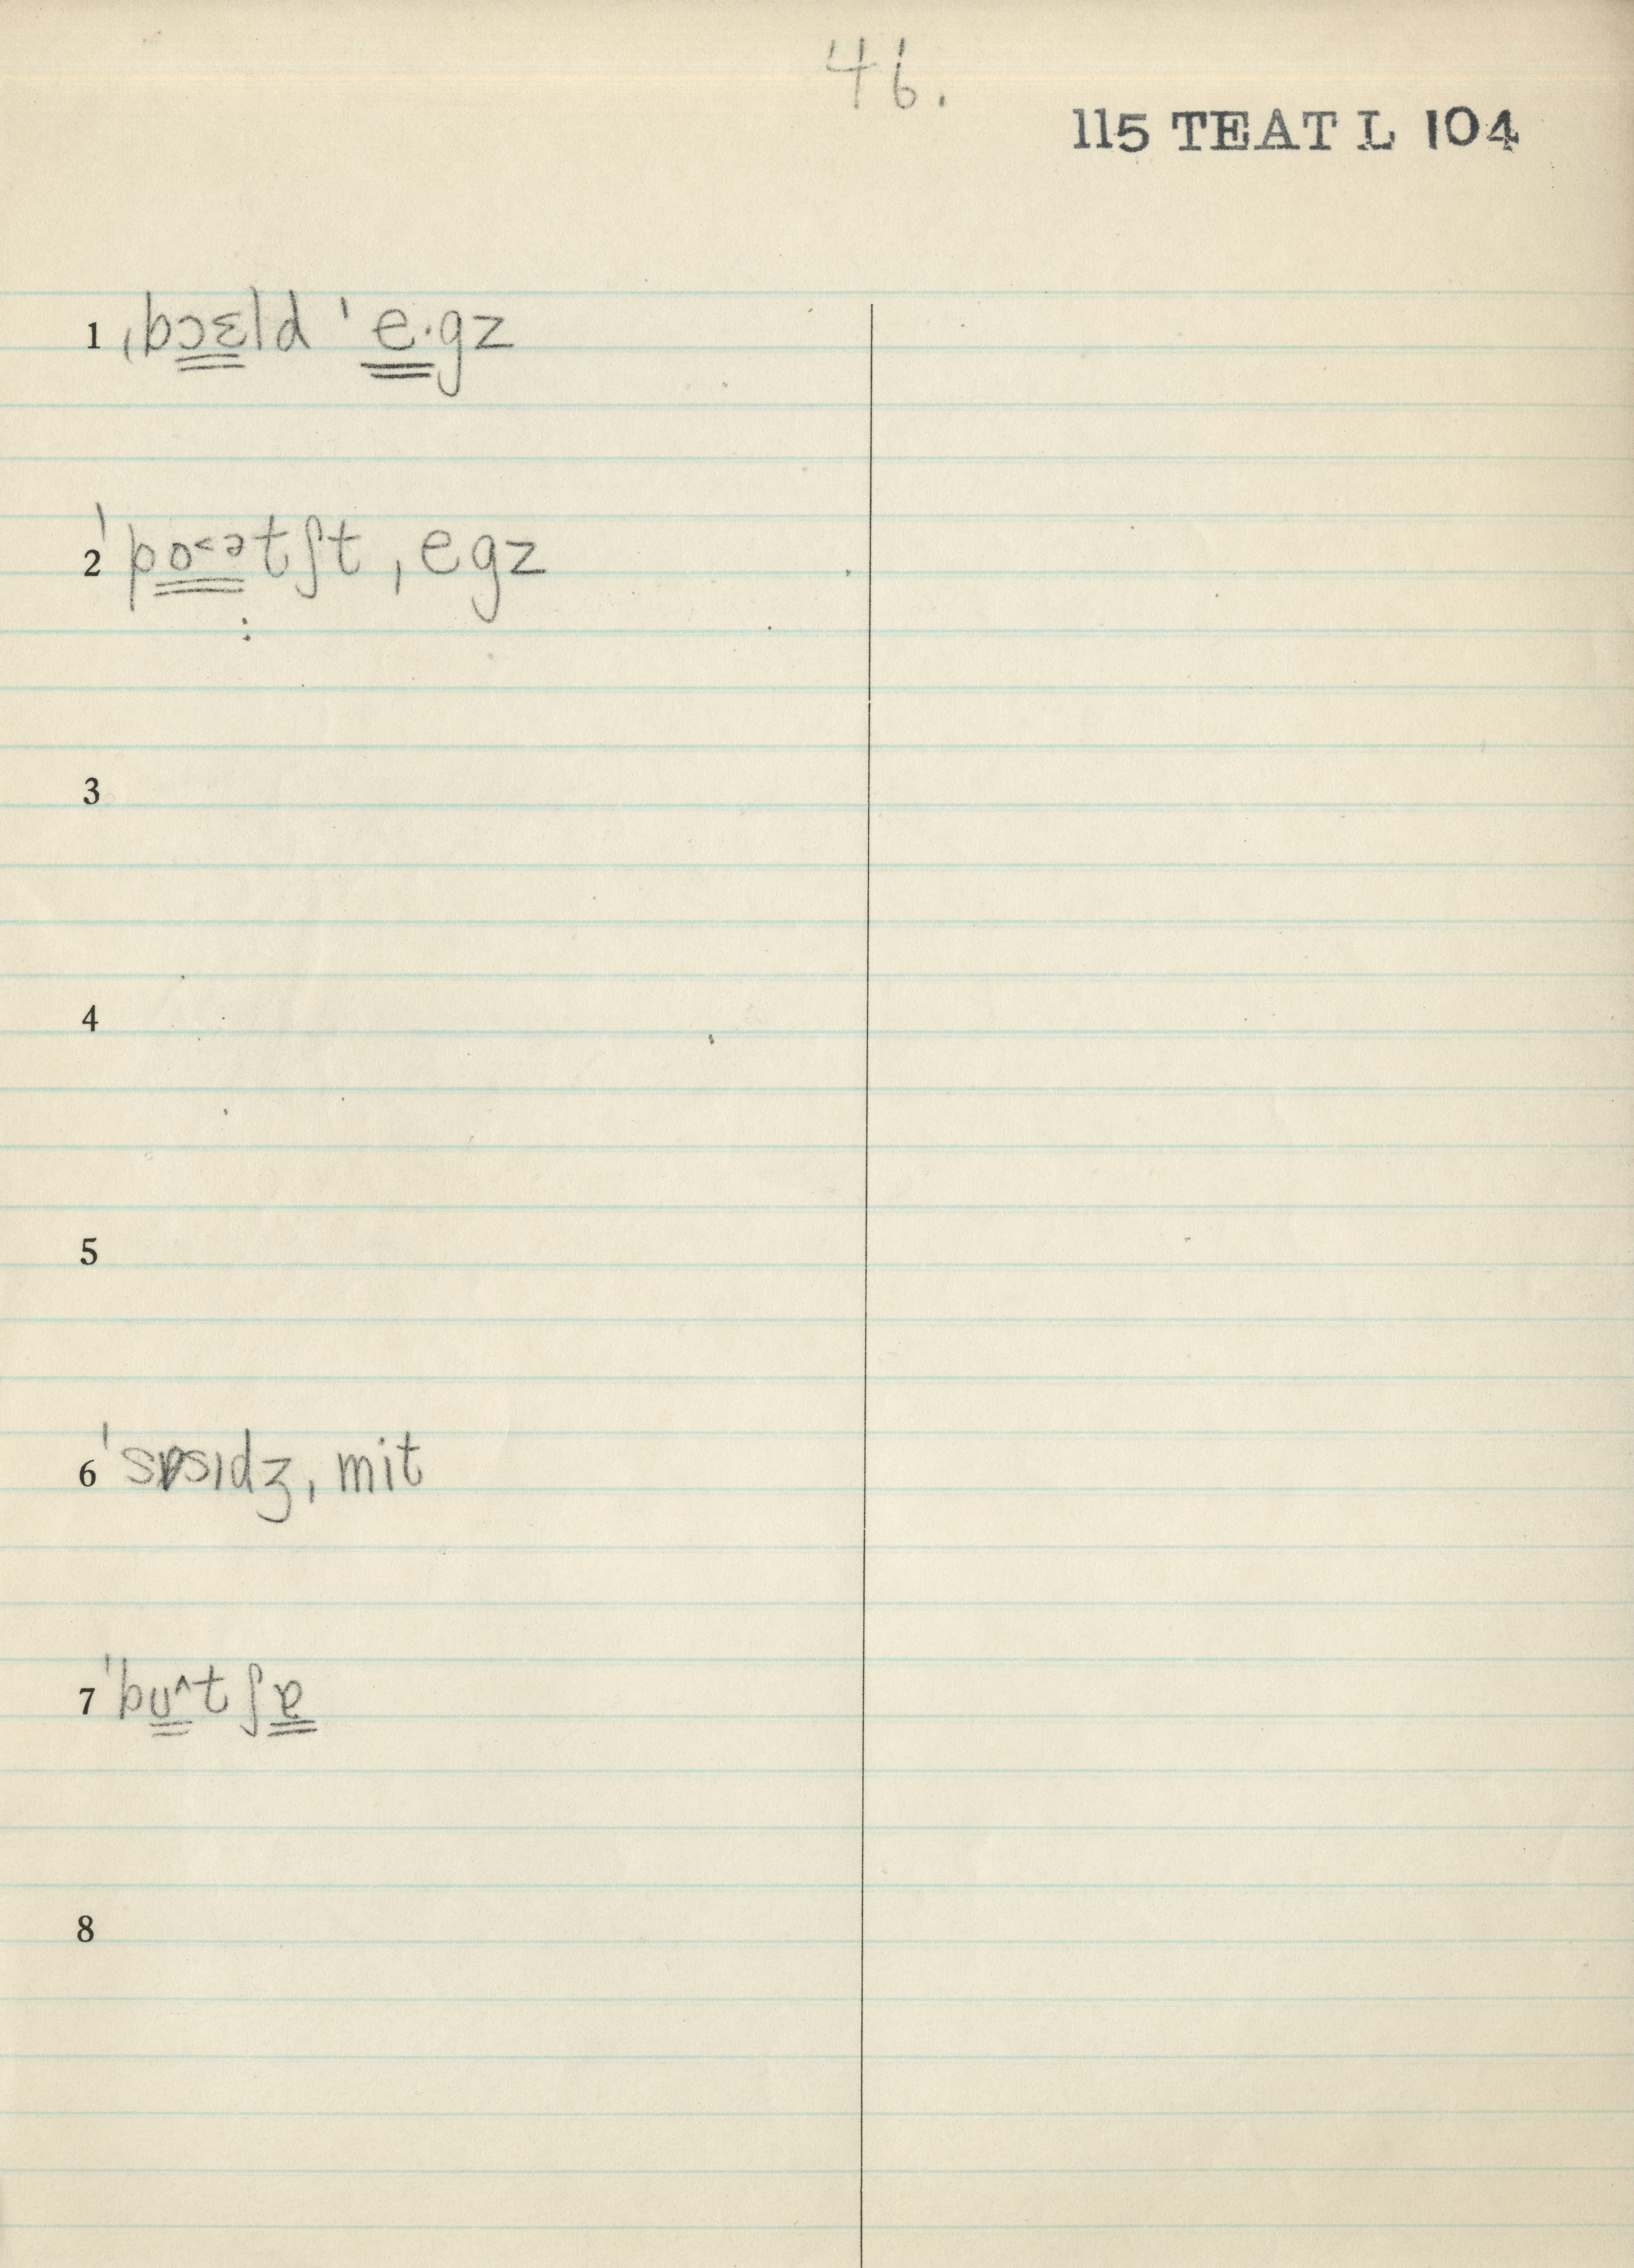 46.
115 TEAT L 104
1 ˌbɔɛld ˈe·gz
2 ˈpo˂ətʃt ˌegz
:
3
4
5
6 ˈsɒsɪdʒ ˌmit
7 ˈbʊ^tʃɐ
8